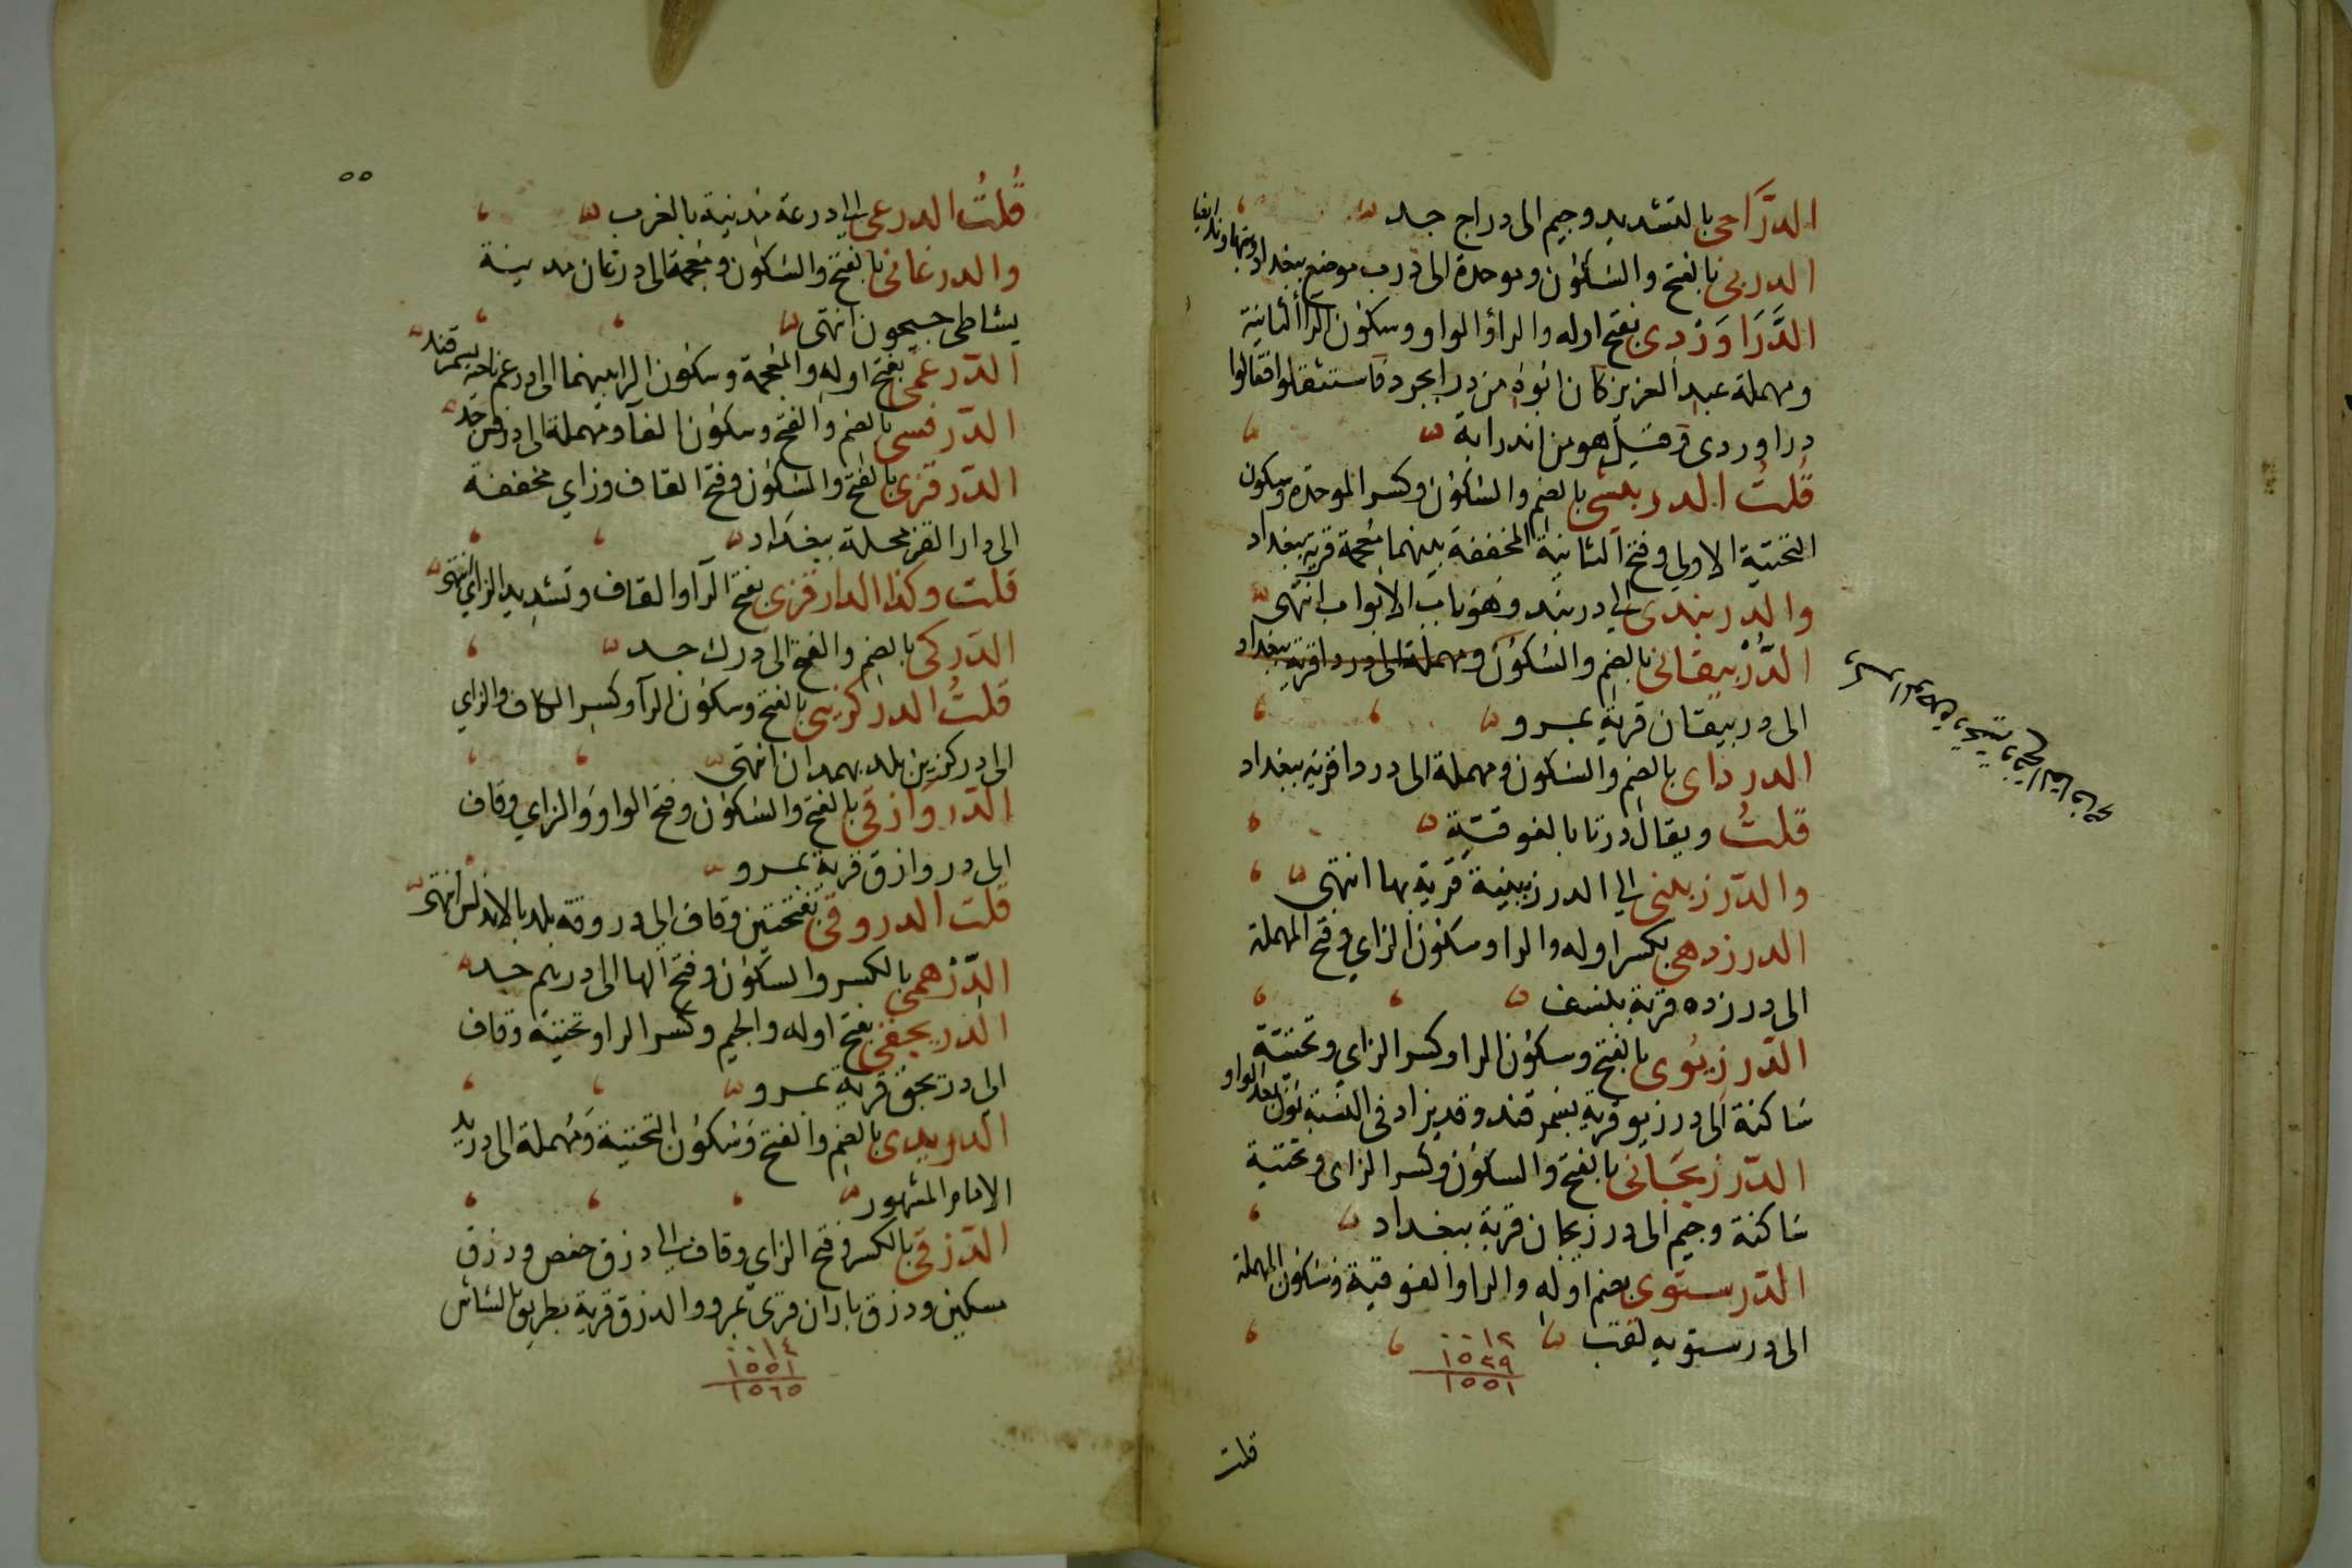 الدَّرَّاجى بالتشديد وجيم الى دراج جد
الدربى بالفتح والسكون وموحدة الى درب موضع ببغداد
الدَّرَاوَرْدى بفتح اوله والراء والواو وسكون الرا الثانية
ومهملة عبد العزيز كان ابوه من درابجرد فاستثقلوا فقالوا
دراوردى وقيل هو من اندرابة
قُلتُ الدربيشى بالضم والسكون وكسر الموحدة وسكون
التحتية الاولى وفتح الثانية المخففة بينهما معجمة قرية ببغداد
والدربندى الى دربند وهو باب الابواب انتهى
الدُّرْبيقانى بالضم والسكون ومهملة الى دردا قرية ببغداد
الى دربيقان قرية بمرو
الدرداى بالضم والسكون ومهملة الى دردا قرية ببغداد
قلتُ ويقال درتا بالفوقية
والدرزبينى الى الدرزبينية قرية بها انتهى
الدرزدهى بكسر اوله والرا وسكون الزاي وفتح المهملة
الى درزده قرية بنسف
الدرزيوى بالفتح وسكون الرا وكسر الزاي وتحتية
ساكنة الى درزيو قرية بسمرقند وقد يزاد فى النسبة نون بعد الواو
الدرزيجانى بالفتح والسكون وكسر الزاى وتحتية
ساكنة وجيم الى درزيجان قرية ببغداد
الدرستوى بضم اوله والرا والفوقية وسكون المهملة
الى درستويه لقب
٠٠١٢
١٥٣٩
١٥٥١
قلت
٥٥
قُلتُ الدرعى الى درعة مدينة بالغرب
والدرغانى بالفتح والسكون ومعجمة الى درغان مدينة
بشاطى جيحون انتهى
الدرغمى بفتح اوله والمعجمة وسكون الرا بينهما الى درغم ناحية بسمرقند
الدرفسى بالضم والفتح وسكون الفا ومهملة الى درفس جد
الدرقزى بالفتح والسكون وفتح القاف وزاي مخففة
الى دار القز محلة ببغداد
قلت وكذا الدارقزى بفتح الرا والقاف وتشديد الزاي انتهى
الدركى بالضم والفتح الى درك جد
قلتُ الدركزينى بالفتح وسكون الرا وكسر الكاف والزاي
الى دركزين بلد بهمدان انتهى
الدروازقى بالفتح والسكون وفتح الواو والزاي وقاف
الى دروازق قرية بمرو
قلت الدروقى بفتحتين وقاف الى دروقة بلد بالاندلس انتهى
الدِّرْهمى بالكسر والسكون وفتح الها الى درهم جد
الدريجقى بفتح اوله والجيم وكسر الرا وتحتية وقاف
الى دريجق قرية بمرو
الدريدى بالضم والفتح وسكون التحتية ومهملة الى دريد
الامام المشهور
الدزقى بالكسر وفتح الزاي وقاف الى دزق حفص ودزق
مسكين ودزق باران قرى بمرو والدزق قرية بطريق الشاش
٠٠١٤
١٥٥١
١٥٦٥